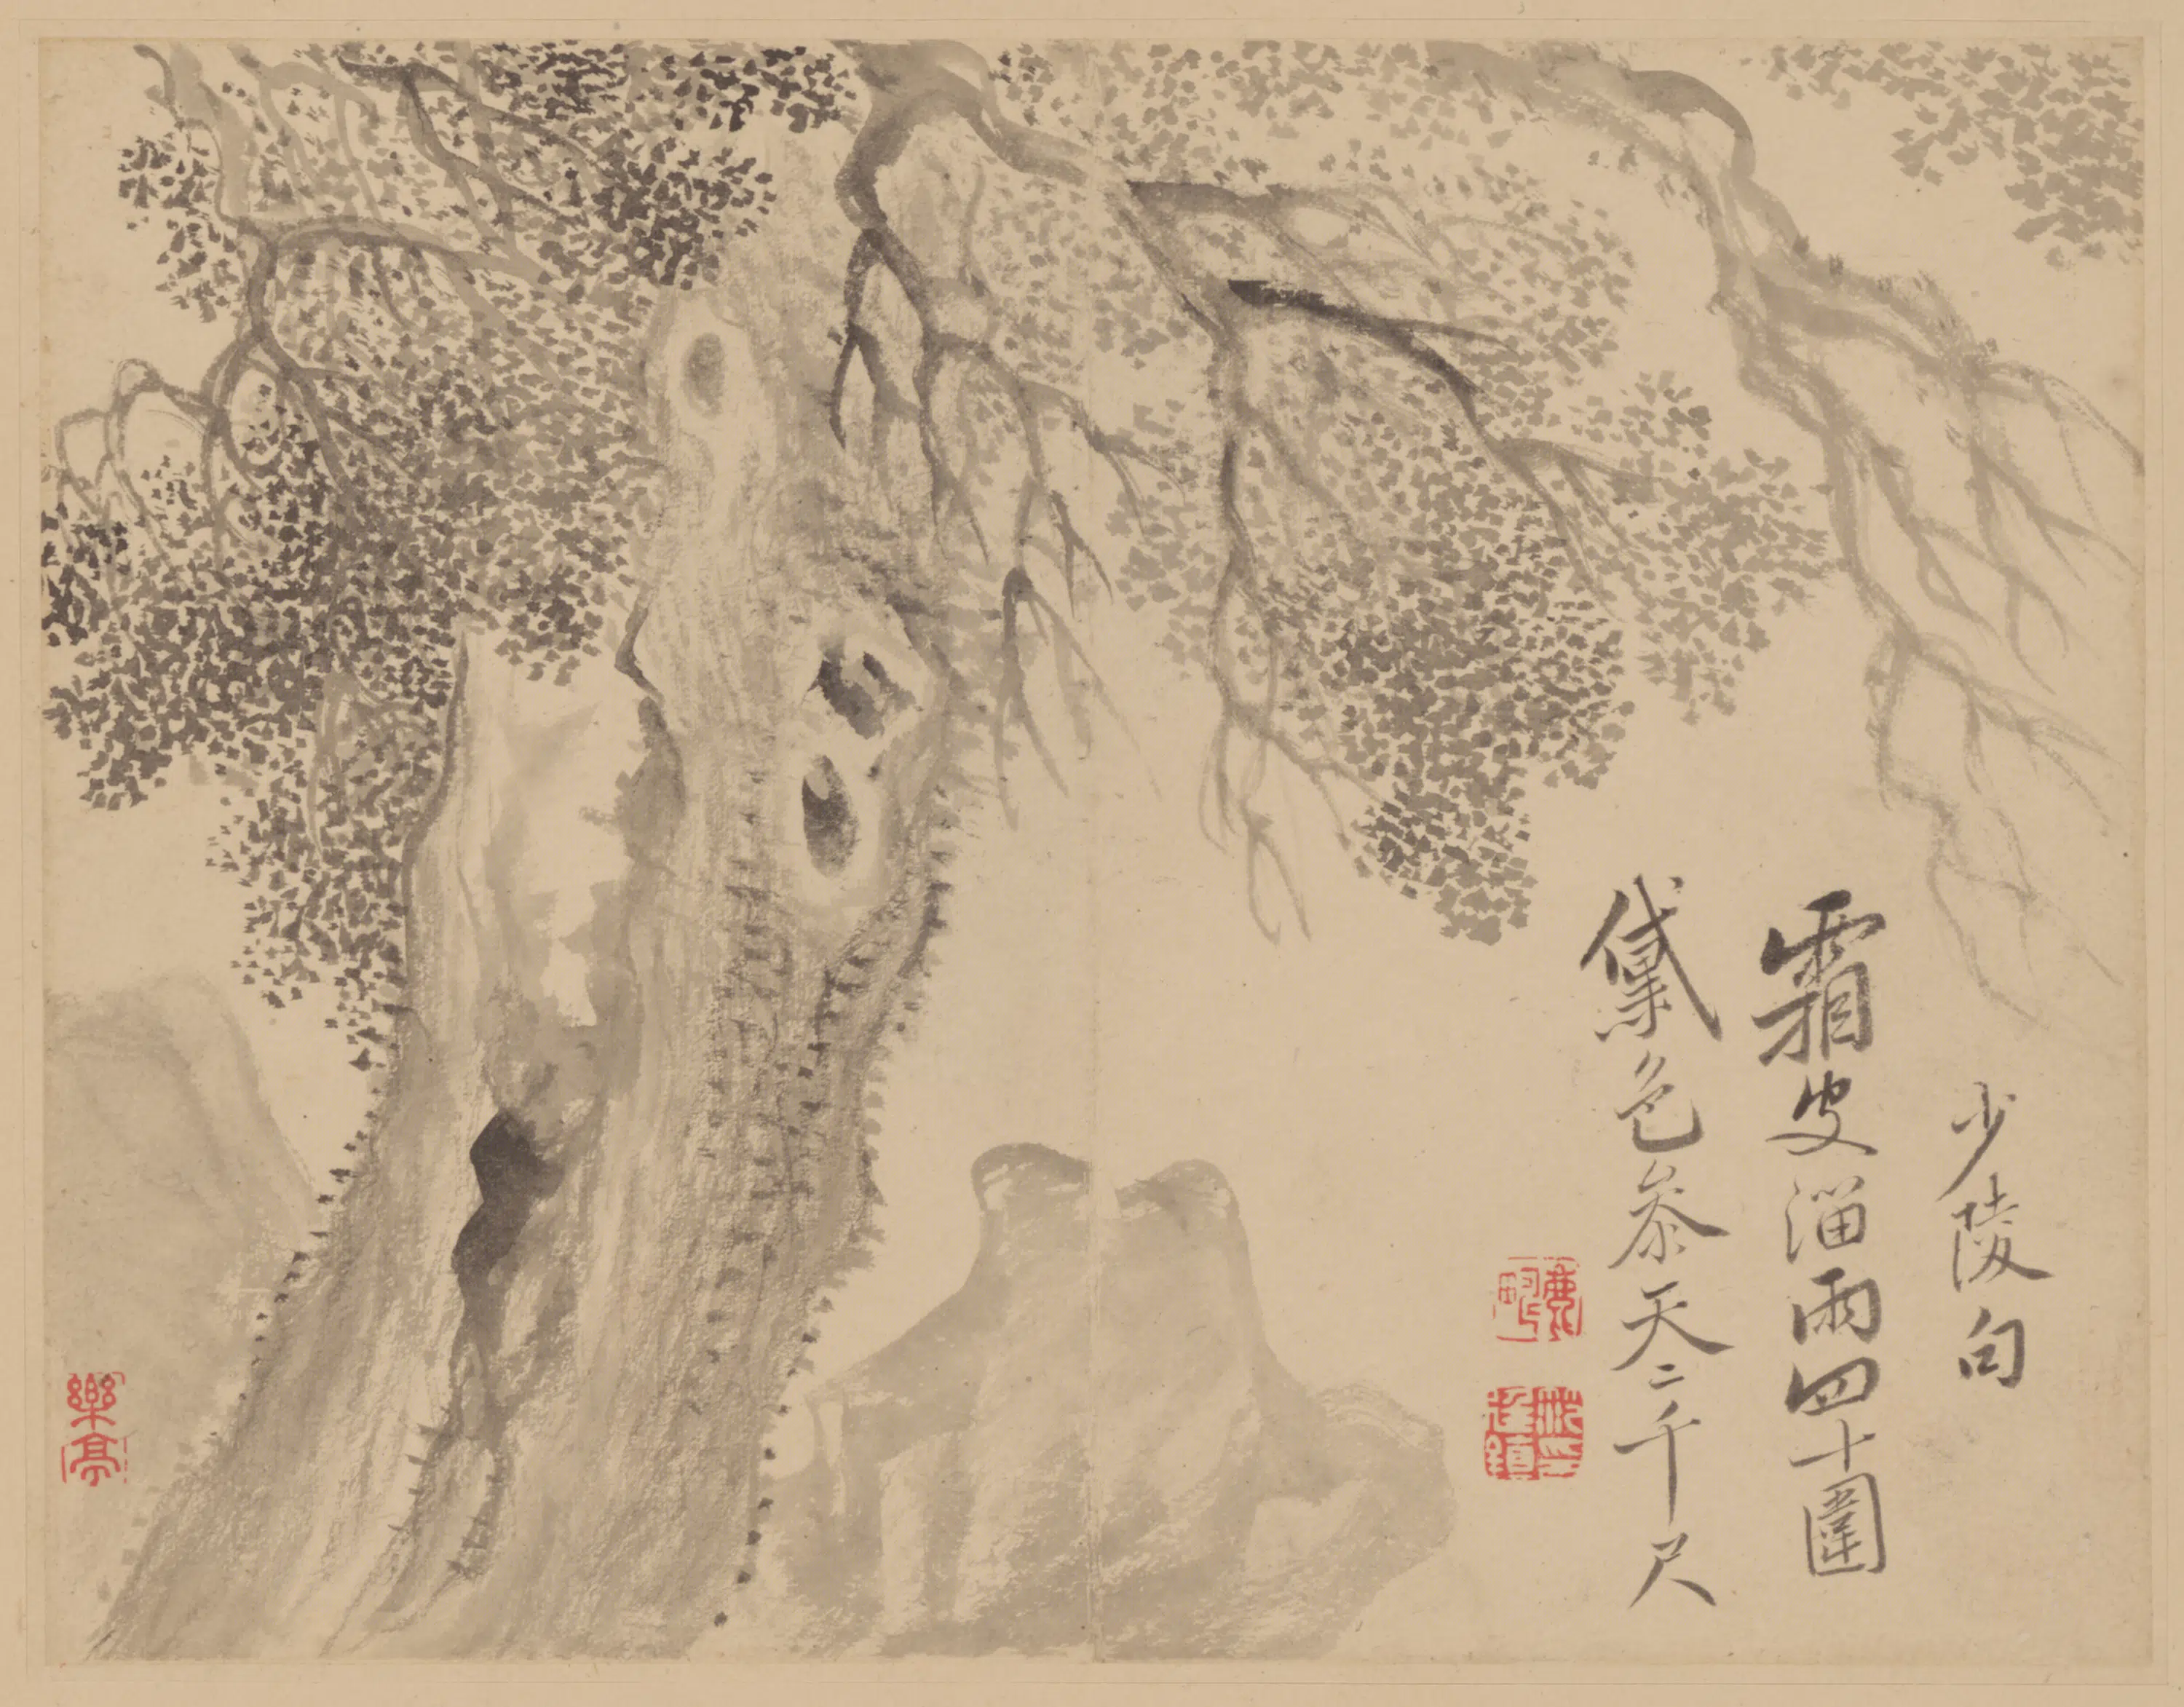 少陵句
霜皮溜雨四十圍
黛色參天二千尺
樂亭